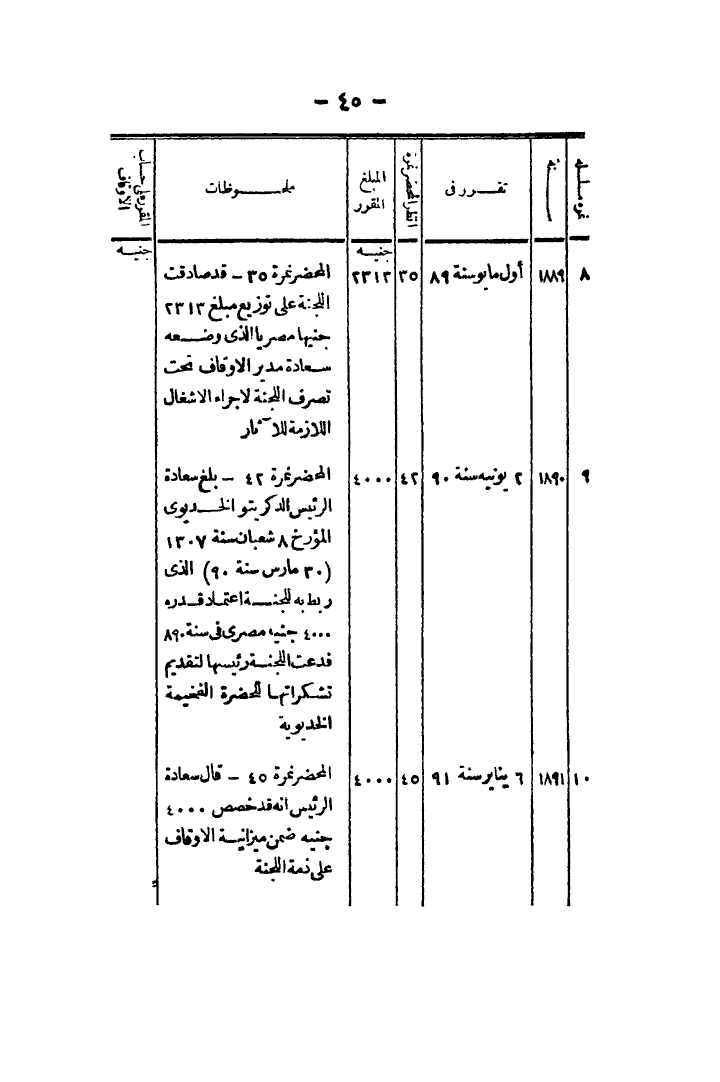 — ٤٥ —
نمره مسلسله | سنة | تقرر فى | انظر المحضر نمره | المبلغ المقرر | ملحوظات | المقرر فى حساب الاوقاف
جنيه | جنيه
٨ | ١٨٨٩ | أول مايو سنة ٨٩ | ٣٥ | ٢٣١٣ | المحضر نمرة ٣٥ – قد صادقت
اللجنة على توزيع مبلغ ٢٣١٣
جنيها مصريا الذى وضعه
سعادة مدير الاوقاف تحت
تصرف اللجنة لاجراء الاشغال
اللازمة للآثار
٩ | ١٨٩٠ | ٢ يونيه سنة ٩٠ | ٤٢ | ٤٠٠٠ | المحضر نمرة ٤٢ – بلغ سعادة
الرئيس الدكريتو الخديوى
المؤرخ ٨ شعبان سنة ١٣٠٧
(٣٠ مارس سنة ٩٠) الذى
ربط به للجنة اعتماد قدره
٤٠٠٠ جنيه مصرى فى سنة ٨٩٠
فدعت اللجنة رئيسها لتقديم
تشكراتها للحضرة الفخيمة
الخديوية
١٠ | ١٨٩١ | ٦ يناير سنة ٩١ | ٤٥ | ٤٠٠٠ | المحضر نمرة ٤٥ – قال سعادة
الرئيس انه قد خصص ٤٠٠٠
جنيه ضمن ميزانية الاوقاف
على ذمة اللجنة | "